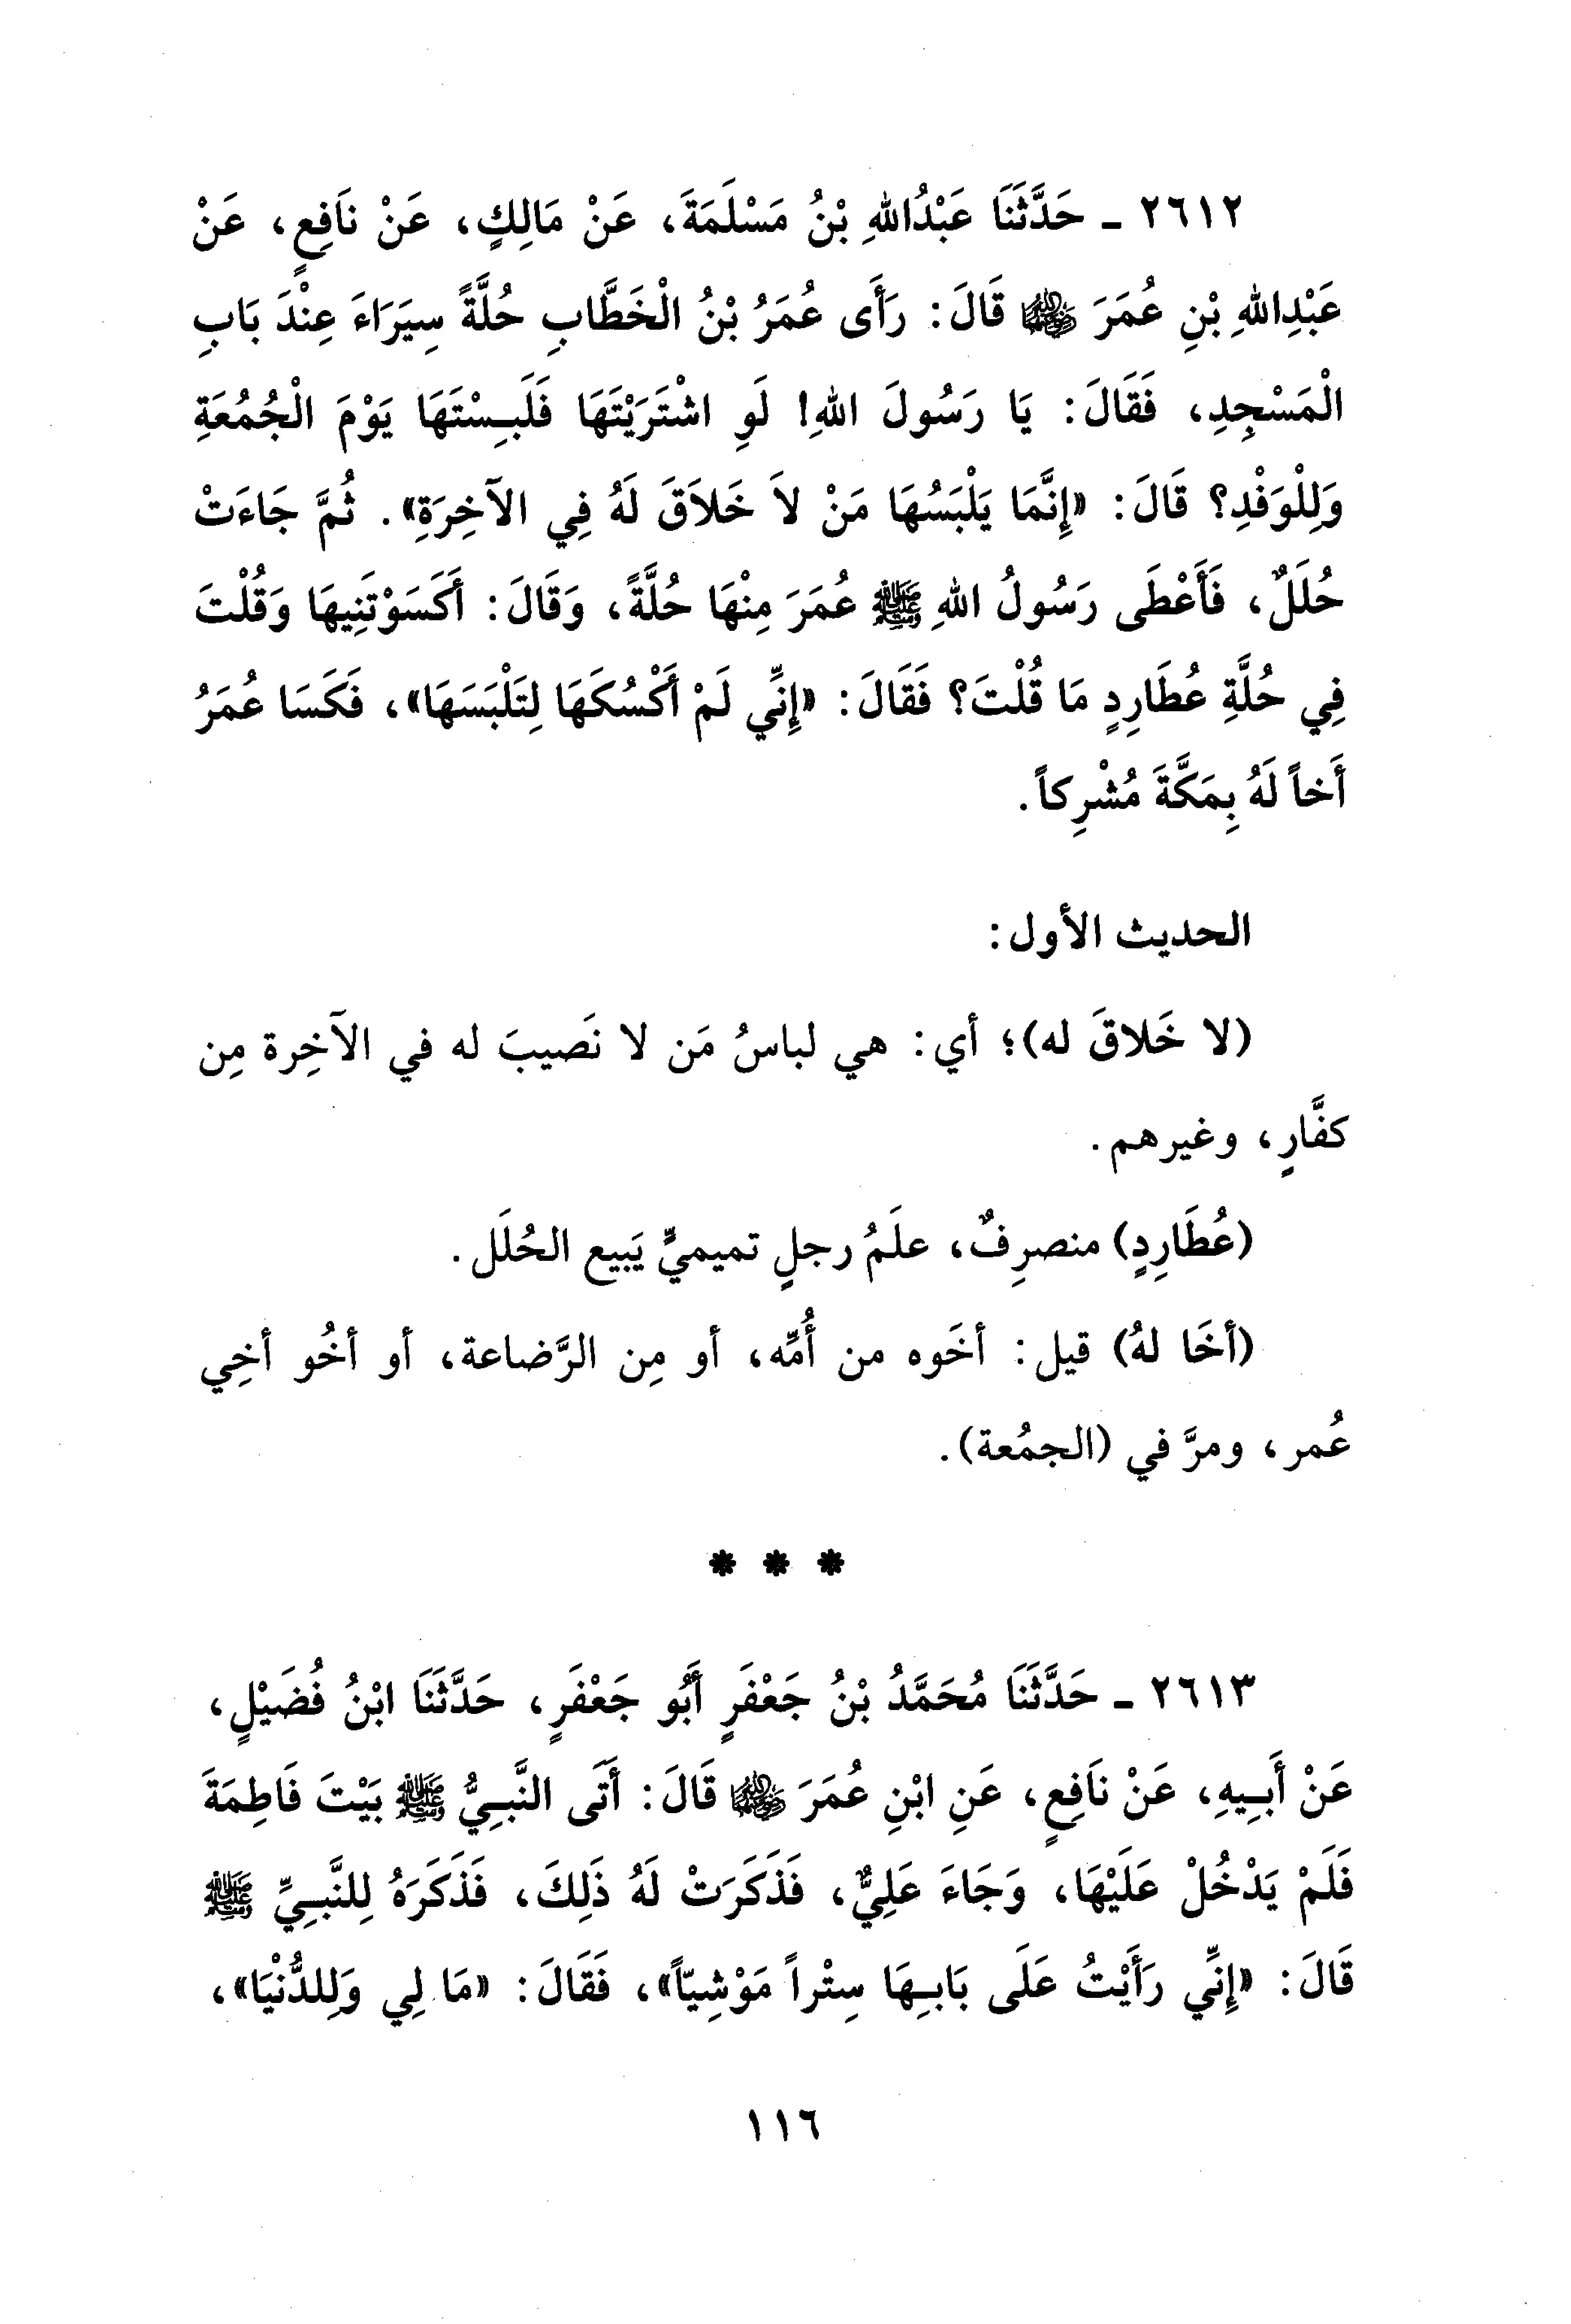 ٢٦١٢ ـ حَدَّثَنَا عَبْدُاللهِ بْنُ مَسْلَمَةَ، عَنْ مَالِكٍ، عَنْ نَافِعٍ، عَنْ
عَبْدِاللهِ بْنِ عُمَرَ ﵄ قَالَ: رَأَى عُمَرُ بْنُ الْخَطَّابِ حُلَّةً سِيَرَاءَ عِنْدَ بَابِ
الْمَسْجِدِ، فَقَالَ: يَا رَسُولَ اللهِ! لَوِ اشْتَرَيْتَهَا فَلَبِسْتَهَا يَوْمَ الْجُمُعَةِ
وَلِلْوَفْدِ؟ قَالَ: «إِنَّمَا يَلْبَسُهَا مَنْ لاَ خَلاَقَ لَهُ فِي الآخِرَةِ». ثُمَّ جَاءَتْ
حُلَلٌ، فَأَعْطَى رَسُولُ اللهِ ﷺ عُمَرَ مِنْهَا حُلَّةً، وَقَالَ: أَكَسَوْتَنِيهَا وَقُلْتَ
فِي حُلَّةِ عُطَارِدٍ مَا قُلْتَ؟ فَقَالَ: «إِنِّي لَمْ أَكْسُكَهَا لِتَلْبَسَهَا»، فَكَسَا عُمَرُ
أَخاً لَهُ بِمَكَّةَ مُشْرِكاً.
الحديث الأول:
(لا خَلاقَ له)؛ أي: هي لباسُ مَن لا نَصيبَ له في الآخِرة مِن
كفَّارٍ، وغيرهم.
(عُطَارِدٍ) منصرِفٌ، علَمُ رجلٍ تميميٍّ يَبيع الحُلَل.
(أخَا لهُ) قيل: أخَوه من أُمِّه، أو مِن الرَّضاعة، أو أخُو أخِي
عُمر، ومرَّ في (الجمُعة).
* * *
٢٦١٣ ـ حَدَّثَنَا مُحَمَّدُ بْنُ جَعْفَرٍ أَبُو جَعْفَرٍ، حَدَّثَنَا ابْنُ فُضَيْلٍ،
عَنْ أَبِيهِ، عَنْ نَافِعٍ، عَنِ ابْنِ عُمَرَ ﵄ قَالَ: أَتَى النَّبِيُّ ﷺ بَيْتَ فَاطِمَةَ
فَلَمْ يَدْخُلْ عَلَيْهَا، وَجَاءَ عَلِيٌّ، فَذَكَرَتْ لَهُ ذَلِكَ، فَذَكَرَهُ لِلنَّبِيِّ ﷺ
قَالَ: «إِنِّي رَأَيْتُ عَلَى بَابِهَا سِتْراً مَوْشِيّاً»، فَقَالَ: «مَا لِي وَلِلدُّنْيَا»،
١١٦